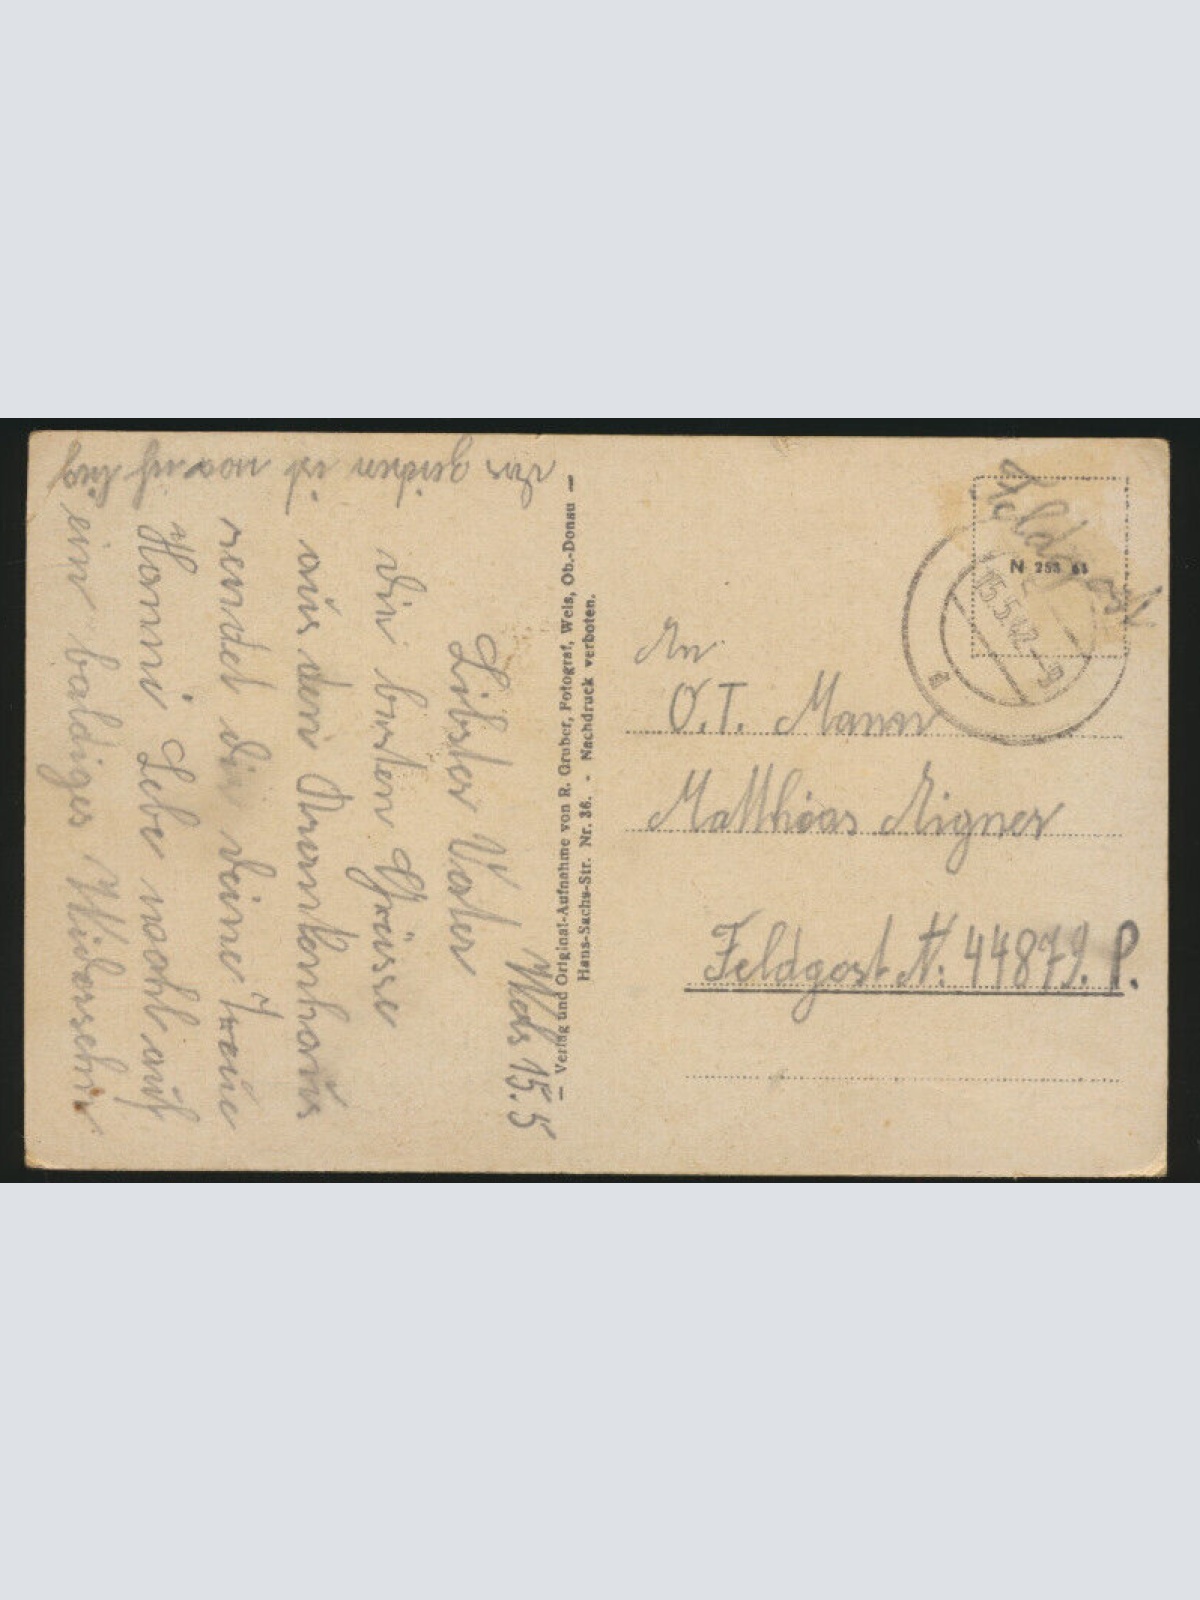 Wels 15.5
Liebster Vater
Die besten Grüsse
aus dem Krankenhaus
sendet dir deine Treue
Hanni Lebe wohl auf
ein baldiges Widersehn
ist was ich
— Verlag und Original-Aufnahme von R. Gruber, Fotograf, Wels, Ob.-Donau —
Hans-Sachs-Str. Nr. 36. - Nachdruck verboten.
Feldpost
N 258 61
15.5.42
An
O.T. Mann
Matthias Aigner
Feldpost N: 44879. P.